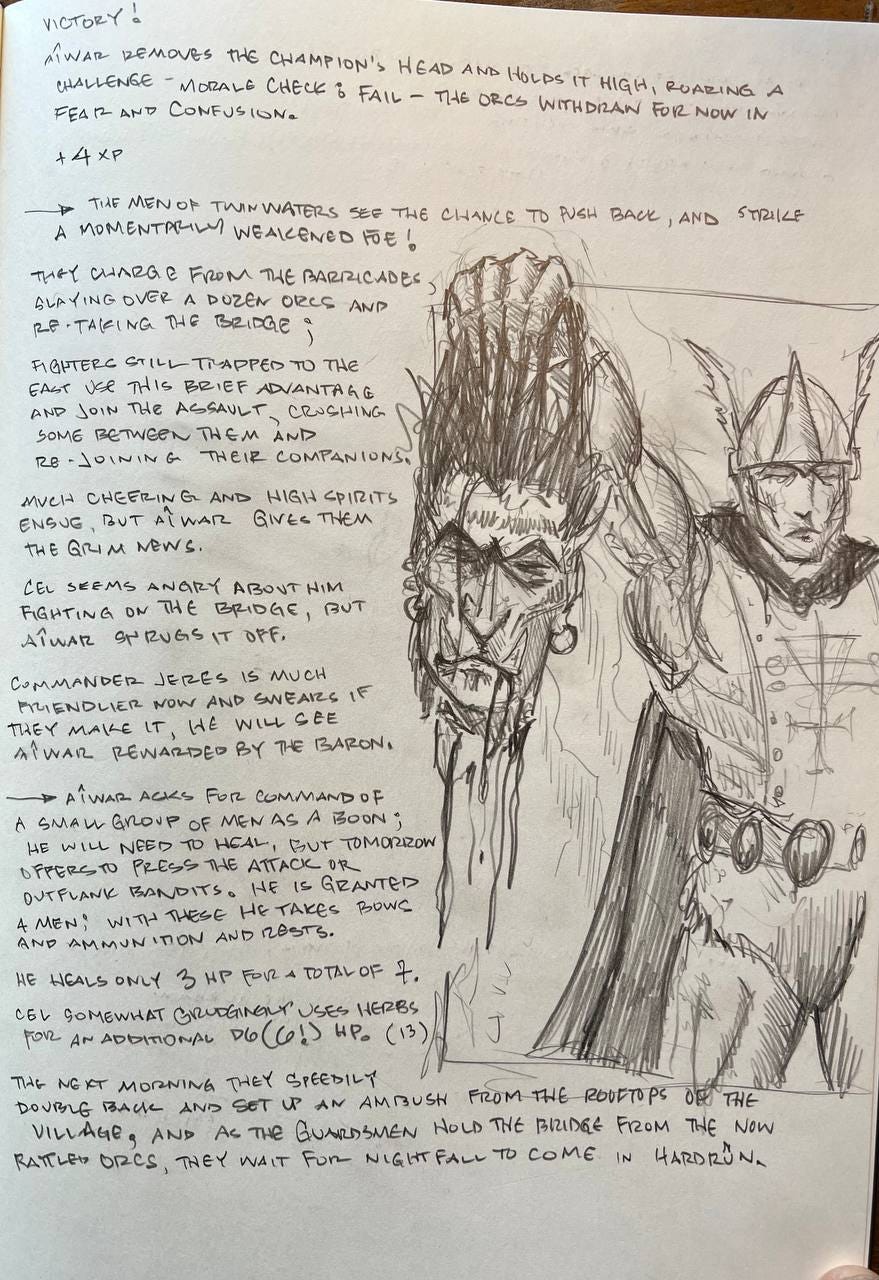 VICTORY!
AÎWAR REMOVES THE CHAMPION'S HEAD AND HOLDS IT HIGH, ROARING A
CHALLENGE – MORALE CHECK: FAIL – THE ORCS WITHDRAW FOR NOW IN
FEAR AND CONFUSION.
+4 XP
→ THE MEN OF TWINWATERS SEE THE CHANCE TO PUSH BACK, AND STRIKE
A MOMENTARILY WEAKENED FOE!
THEY CHARGE FROM THE BARRICADES,
SLAYING OVER A DOZEN ORCS AND
RE-TAKING THE BRIDGE;
FIGHTERS STILL TRAPPED TO THE
EAST USE THIS BRIEF ADVANTAGE
AND JOIN THE ASSAULT, CRUSHING
SOME BETWEEN THEM AND
RE-JOINING THEIR COMPANIONS.
MUCH CHEERING AND HIGH SPIRITS
ENSUE, BUT AÎWAR GIVES THEM
THE GRIM NEWS.
CEL SEEMS ANGRY ABOUT HIM
FIGHTING ON THE BRIDGE, BUT
AÎWAR SHRUGS IT OFF.
COMMANDER JERES IS MUCH
FRIENDLIER NOW AND SWEARS IF
THEY MAKE IT, HE WILL SEE
AÎWAR REWARDED BY THE BARON.
→ AÎWAR ASKS FOR COMMAND OF
A SMALL GROUP OF MEN AS A BOON;
HE WILL NEED TO HEAL, BUT TOMORROW
OFFERS TO PRESS THE ATTACK OR
OUTFLANK BANDITS. HE IS GRANTED
4 MEN; WITH THESE HE TAKES BOWS
AND AMMUNITION AND RESTS.
HE HEALS ONLY 3 HP FOR A TOTAL OF 7.
CEL SOMEWHAT GRUDGINGLY USES HERBS
FOR AN ADDITIONAL D6 (6!) HP. (13)
THE NEXT MORNING THEY SPEEDILY
DOUBLE BACK AND SET UP AN AMBUSH FROM THE ROOFTOPS OF THE
VILLAGE, AND AS THE GUARDSMEN HOLD THE BRIDGE FROM THE NOW
RATTLED ORCS, THEY WAIT FOR NIGHTFALL TO COME IN HARDRÛN.